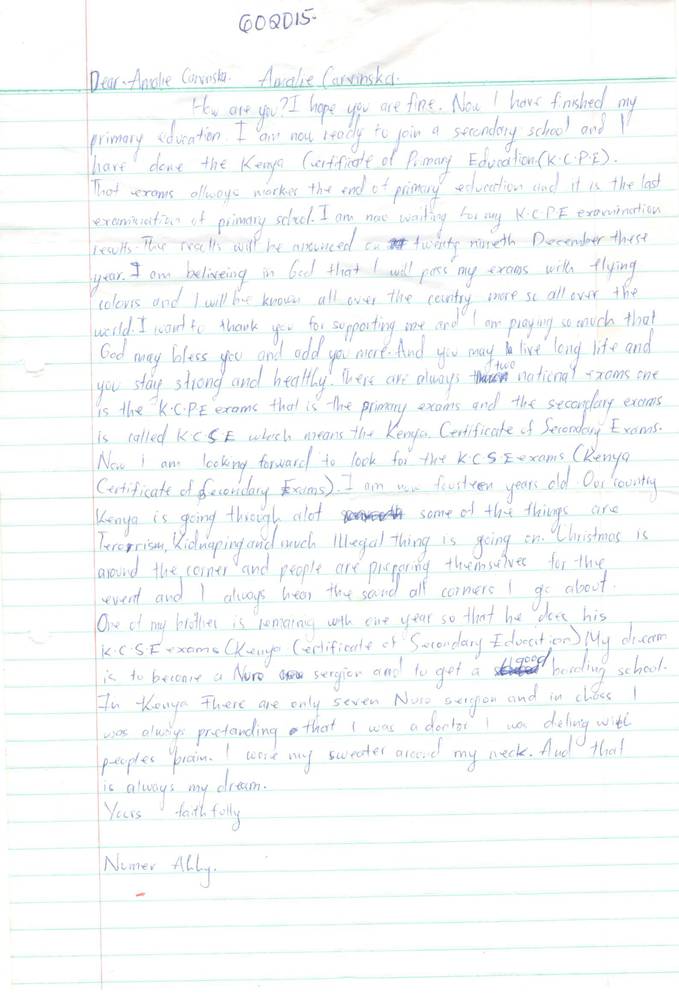 GO2D15.
Dear. Amalie Carvinska. Amalie Carvinska.
How are you? I hope you are fine. Now I have finished my
primary education. I am now ready to join a secondary school and I
have done the Kenya Certificate of Primary Education (K.C.P.E).
That exams allways markes the end of primary education and it is the last
examination of primary school. I am now waiting for my K.C.PE examination
results. The results will be anounced on twenty nineth December these
year. I am beliveing in God that I will pass my exams with flying
colours and I will be known all over the country more so all over the
world. I want to thank you for supporting me and I am praying so much that
God may bless you and add you more. And you may live long life and
you stay strong and healthy. There are always two national exams one
is the K.C.PE exams that is the primary exams and the secondary exams
is called KCSE which means the Kenya Certificate of Secondary Exams.
Now I am looking forward to look for the K.C.S.E exams (Kenya
Certificate of Secondary Exams). I am now fourteen years old. Our country
Kenya is going through alot some of the things are
Terorrism, Kidnaping and much Illegal thing is going on. Christmas is
around the corner and people are preparing themselves for the
event and I always hear the sound all corners I go about.
One of my brother is remaning with one year so that he does his
K.C.S.E exams (Kenya Certificate of Secondary Education) My dream
is to become a Nuro sergion and to get a good boarding school.
In Kenya There are only seven Nuro sergion and in class I
was always pretanding that I was a doctor I was deling with
peoples brain. I wore my sweater around my neck. And that
is always my dream.
Yours faithfully
Numer Ally.